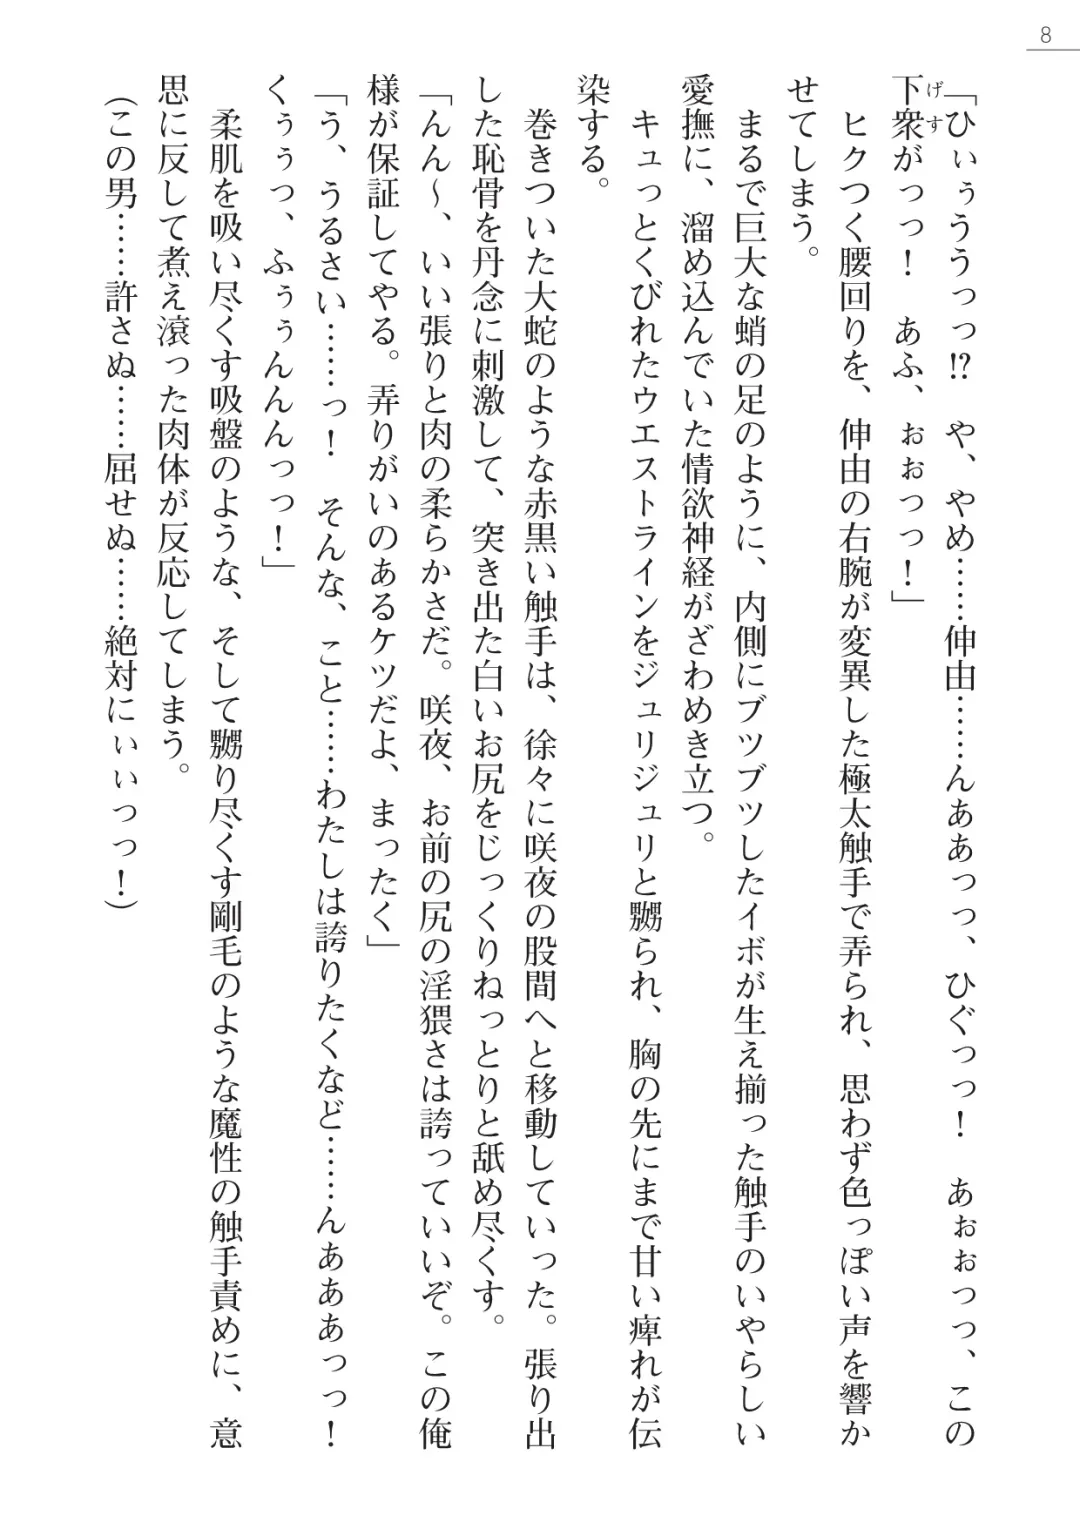 8
「ひぃぅううっっ!? や、やめ……伸由……んああっっ、ひぐっっ！ あぉぉっっ、この
下衆がっっ！ あふ、ぉぉっっ！」
げす
ヒクつく腰回りを、伸由の右腕が変異した極太触手で弄られ、思わず色っぽい声を響か
せてしまう。
まるで巨大な蛸の足のように、内側にブツブツしたイボが生え揃った触手のいやらしい
愛撫に、溜め込んでいた情欲神経がざわめき立つ。
キュっとくびれたウエストラインをジュリジュリと嬲られ、胸の先にまで甘い痺れが伝
染する。
巻きついた大蛇のような赤黒い触手は、徐々に咲夜の股間へと移動していった。張り出
した恥骨を丹念に刺激して、突き出た白いお尻をじっくりねっとりと舐め尽くす。
「んん～、いい張りと肉の柔らかさだ。咲夜、お前の尻の淫猥さは誇っていいぞ。この俺
様が保証してやる。弄りがいのあるケツだよ、まったく」
「う、うるさい……っ！ そんな、こと……わたしは誇りたくなど……んあああっっ！
くぅぅっ、ふぅぅんんんっっ！」
柔肌を吸い尽くす吸盤のような、そして嬲り尽くす剛毛のような魔性の触手責めに、意
思に反して煮え滾った肉体が反応してしまう。
（この男……許さぬ……屈せぬ……絶対にぃぃっっ！）